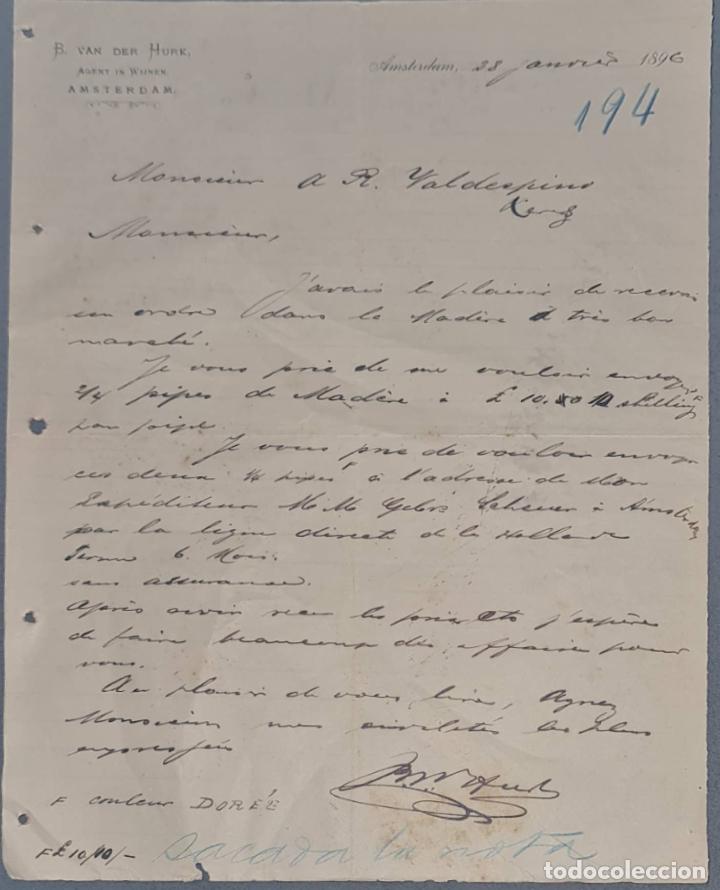 B. VAN DER HURK,
AGENT IN WIJNEN.
AMSTERDAM.
Amsterdam, 28 janvier 1896
194
Monsieur A R. Valdespino
Xerez
Monsieur,
J'avais le plaisir de recevoir
un ordre dans le Madère à très bon
marché.
Je vous prie de me vouloir envoyer
2/4 pipes de Madère à £ 10. 10 shilling F
par pipe.
Je vous prie de vouloir envoyer
ces deux 1/4 pipes F à l'adresse de Mon
Expéditeur M.M. Gebrs Scheuer à Amsterdam
par la ligne direct de la Hollande
Terme 6. Mois.
sans assuranse.
Après avoir recu les prix Cts j'espère
de faire beaucoup des affaires pour
vous.
Au plaisir de vous lire, Agréez
Monsieur mes civilités les plus
F couleur DORÉE
F £ 10/10/-
sacada la nota
todocoleccion